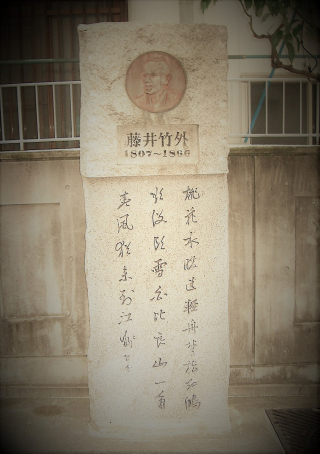 藤井竹外
1807~1866
桃花水暖送輕舟背指孤鴻
欲没頭雪白比良山一角
春風猶未到江州